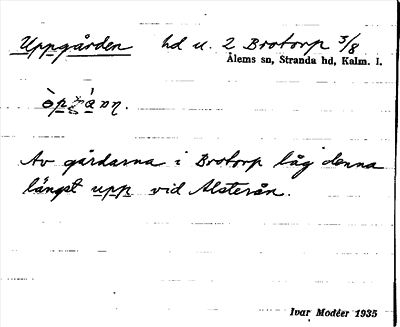 Uppgården hd u. 2 Brotorp 3/8
Ålems sn, Stranda hd, Kalm. l.
Av gårdarna i Brotorp låg denna
längst upp vid Alsterån.
Ivar Modéer 1935